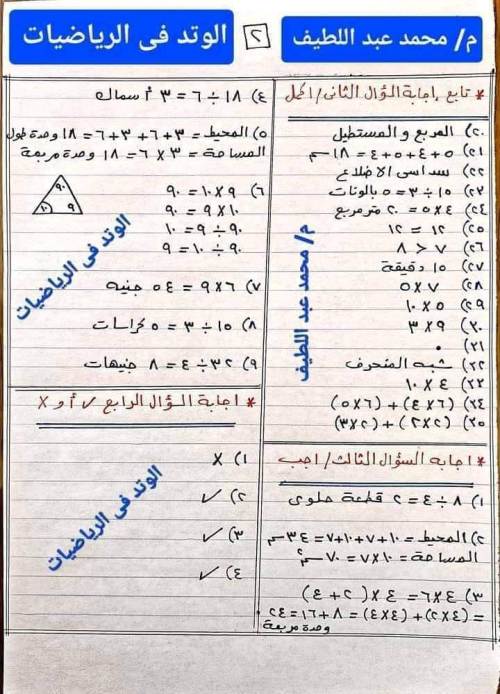 م/ محمد عبد اللطيف
٢
الوتد فى الرياضيات
* تابع إجابة السؤال الثانى / اكمل
٢٠) المربع و المستطيل
٢١) ٥ + ٤ + ٥ + ٤ = ١٨ سم
٢٢) سداسى الاضلاع
٢٣) ١٥ ÷ ٣ = ٥ بالونات
٢٤) ٤ × ٥ = ٢٠ متر مربع
٢٥) ١٢ = ١٢
٢٦) ٧ < ٨
٢٧) ١٥ دقيقة
٢٨) ٧ × ٥
٢٩) ٥ × ١٠
٣٠) ٩ × ٣
٣١) ٠
٣٢) شبه المنحرف
٣٣) ٤ × ١٠
٣٤) (٦ × ٤) + (٦ × ٥)
٣٥) (٢ × ٢) + (٢ × ٣)
م/ محمد عبد اللطيف
* اجابه السؤال الثالث / اجب
١) ٨ ÷ ٤ = ٢ قطعة حلوى
٢) المحيط = ١٠ + ٧ + ١٠ + ٧ = ٣٤ سم
المساحة = ١٠ × ٧ = ٧٠ سم٢
٣) ٤ × ٦ = ٤ × (٢ + ٤)
= (٤ × ٢) + (٤ × ٤) = ٨ + ١٦ = ٢٤
وحدة مربعة
٤) ١٨ ÷ ٦ = ٣ أسماك
٥) المحيط = ٣ + ٦ + ٣ + ٦ = ١٨ وحدة طول
المساحة = ٣ × ٦ = ١٨ وحدة مربعة
٦) ٩ × ١٠ = ٩٠
١٠ × ٩ = ٩٠
٩٠ ÷ ٩ = ١٠
٩٠ ÷ ١٠ = ٩
٩٠
١٠
٩
الوتد فى الرياضيات
٧) ٦ × ٩ = ٥٤ جنيه
٨) ١٥ ÷ ٣ = ٥ كراسات
٩) ٣٢ ÷ ٤ = ٨ جنيهات
* اجابة السؤال الرابع ✓ أو X
١) X
٢) ✓
٣) ✓
٤) ✓
الوتد فى الرياضيات